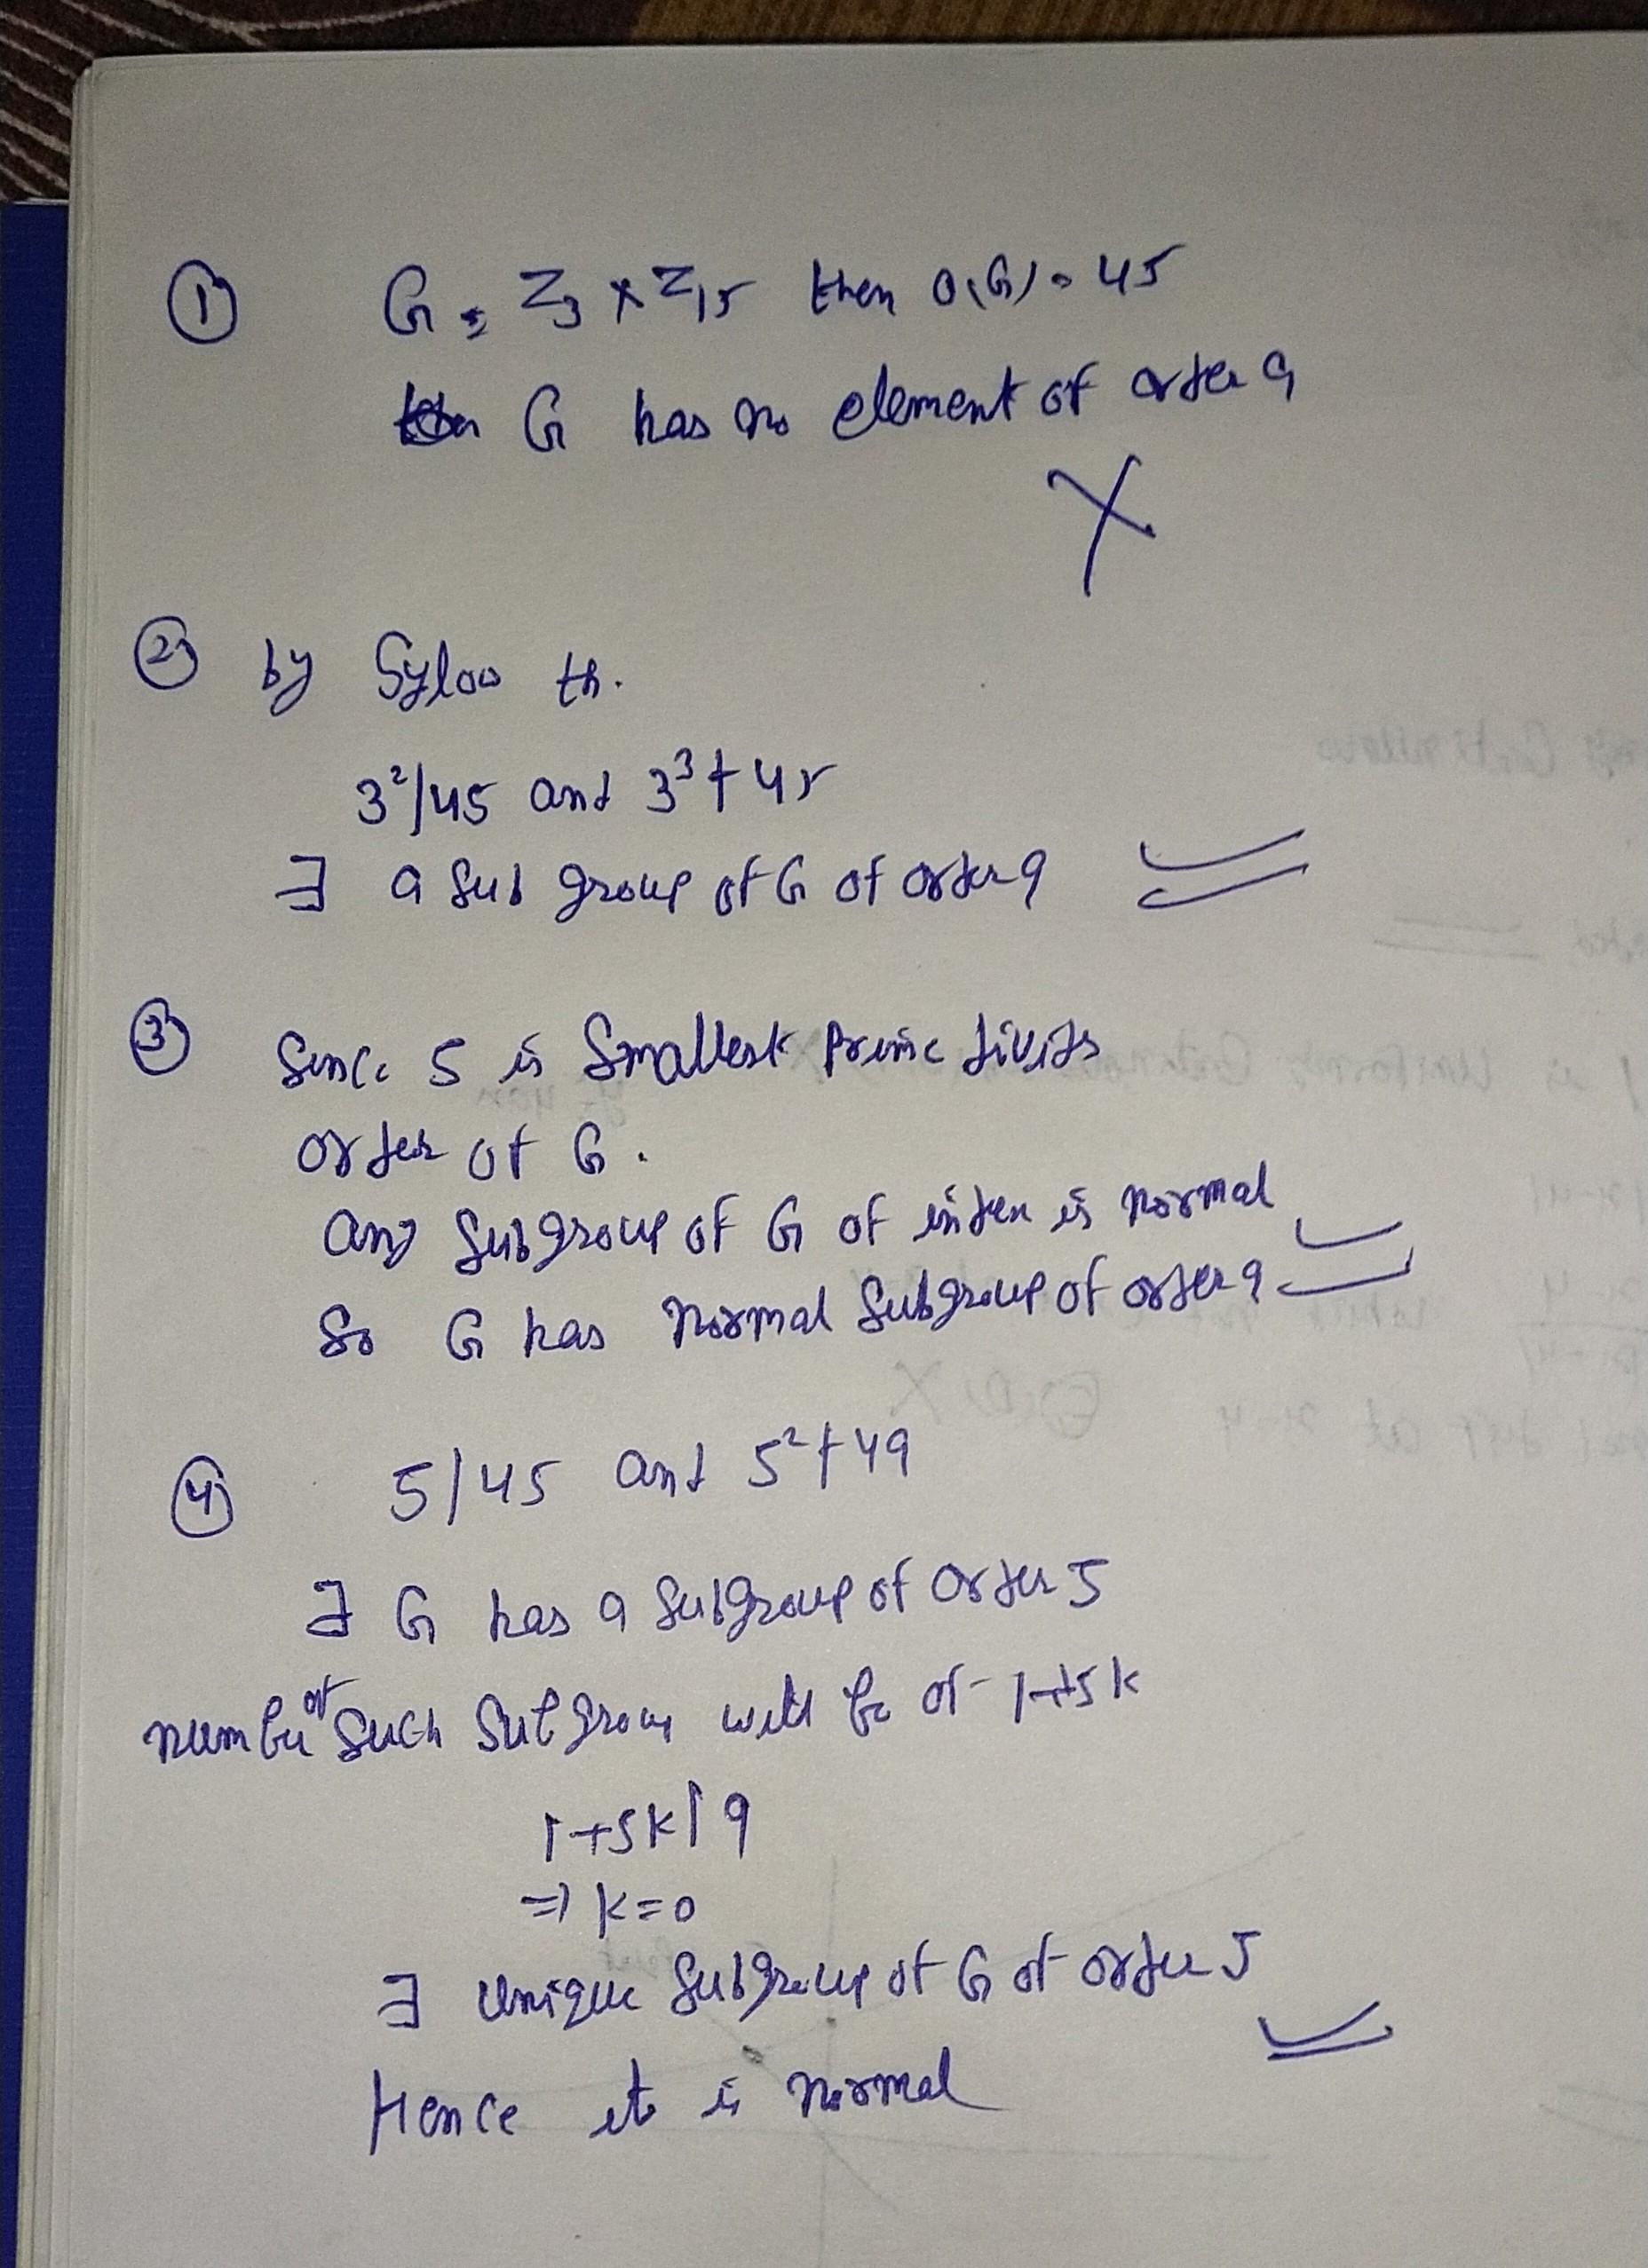 ① G = Z₃ × Z₁₅ then O(G) = 45
G has no element of order 9
② by Sylow th.
3²/45 and 3³∤45
∃ a Sub group of G of order 9
③ Since 5 is Smallest Prime divids
order of G.
any Subgroup of G of index is normal
So G has normal Subgroup of order 9
④ 5/45 and 5²∤49
∃ G has a Subgroup of order 5
number of such subgroup will be of 1+5k
1+5k/9
=) k=0
∃ unique Subgroup of G of order 5
Hence it is normal